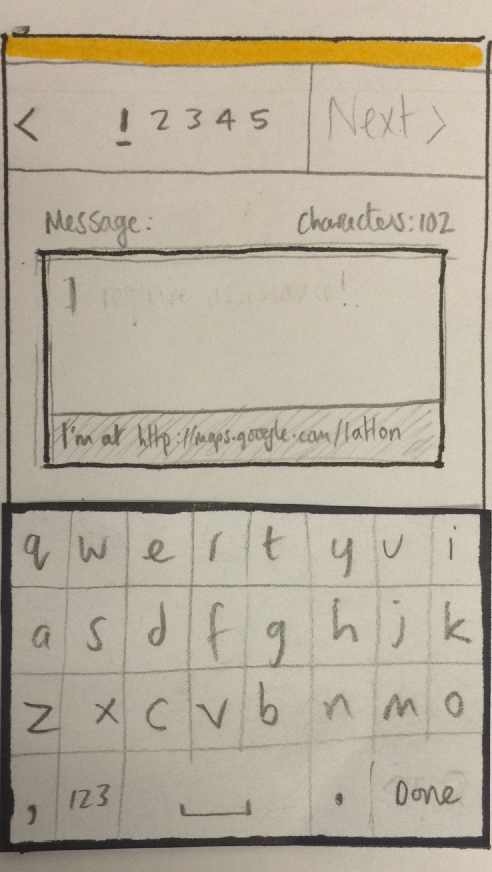 < 1 2 3 4 5 Next >
Message: Characters: 102
I'm at http://maps.google.com/latlon
q w e r t y u i
a s d f g h j k
z x c v b n m o
, 123 . Done